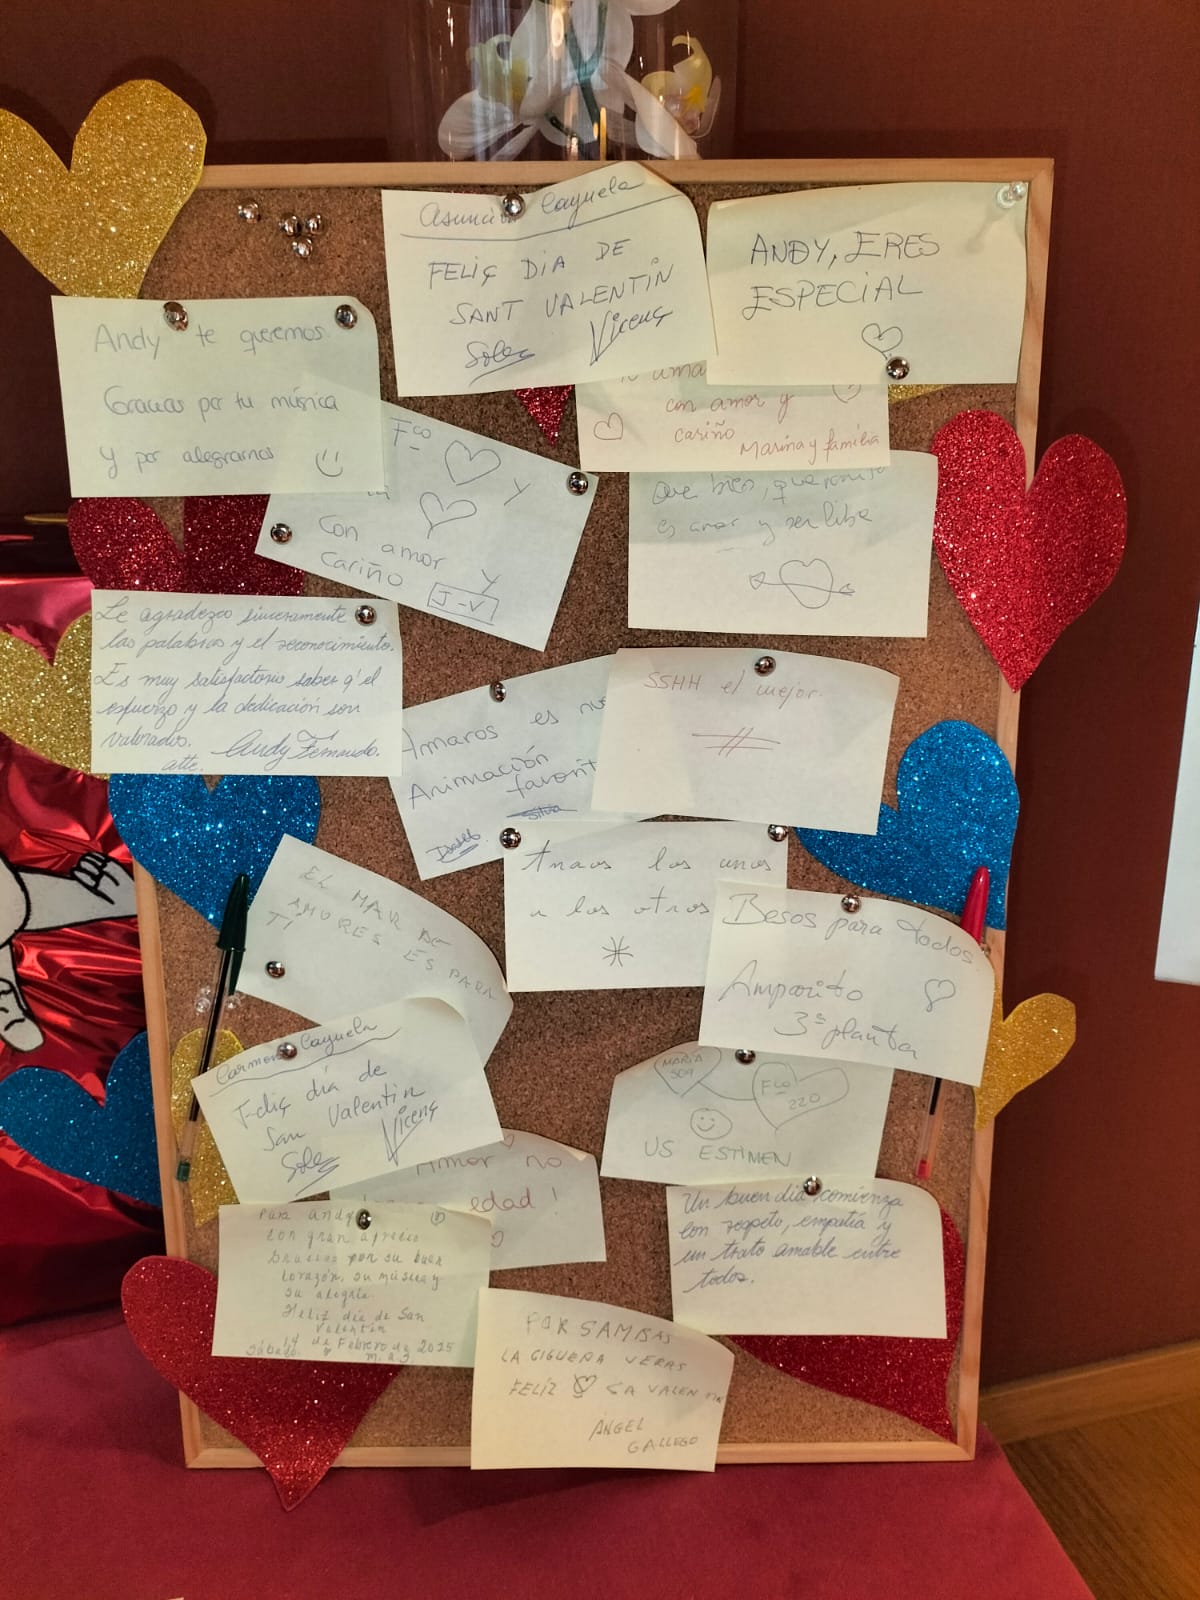 Asunción Cayuela
FELIÇ DIA DE
SANT VALENTIN
Soles Vicenç
ANDY, ERES
ESPECIAL
Andy te queremos.
Gracias por tu música
y por alegrarnos
con amor y
cariño
Marina y familia
Fco
y
Con amor
y
Cariño
J-V
Que bien,
es amor y ser libre
Le agradezco sinceramente
las palabras y el reconocimiento.
Es muy satisfactorio saber q' el
esfuerzo y la dedicación son
valorados. Andy Fernando.
atte.
Amaros es
Animación
Silvia
SSHH el mejor.
Amaos los unos
a los otros
EL MAR DE
AMORES
ES PARA
TI
Besos para todos
Amparito
3ª planta
Carmen Cayuela
Feliç día de
San Valentin
Soles Vicenç
MARIA
509
Fco
220
US ESTIMEN
Amor no
edad!
Un buen día comienza
con respeto, empatía y
un trato amable entre
todos.
Para Andy
con gran aprecio
Gracias por su buen
corazón, su música y
su alegría.
Feliz día de San
Valentín
Sábado 14 de Febrero de 2015
M. a J.
FOR SAMBAS
LA CIGUEÑA VERAS
FELÍZ SA VALEN
ÁNGEL
GALLEGO